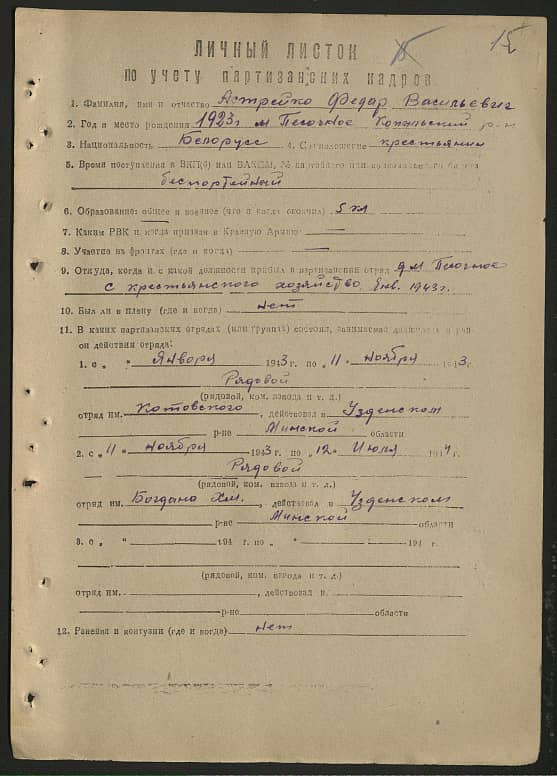 15
ЛИЧНЫЙ ЛИСТОК
по учету партизанских кадров
1. Фамилия, имя и отчество Астрейко Федар Васильевич
2. Год и место рождения 1923г м Песочное Копыльский р-н
3. Национальность Белорусс 4. Соцположение крестьянин
5. Время поступления в ВКП(б) или ВЛКСМ, № партийного или комсомольского билета
беспортейный
6. Образование: общее и военное (что и когда окончил) 5 кл
7. Каким РВК и когда призван в Красную Армию —
8. Участие на фронтах (где и когда) —
9. Откуда, когда и с какой должности прибыл в партизанский отряд м Песочное
с крестьянского хозяйство Янв. 1943г.
10. Был ли в плену (где и когда) нет
11. В каких партизанских отрядах (или группах) состоял, занимаемые должности и рай-
он действия отряда:
1. с „ " Января 1943 г. по „11 " ноября 1943г.
Рядовой
(рядовой, ком. взвода и т. д.)
отряд им. Котовского, действовал в Узденском
р-не Минской области
2. с „11 " ноября 1943г. по „12" Июля 1944г.
Рядовой
(рядовой, ком. взвода и т. д.)
отряд им. Богдана Хм., действовал в Узденском
р-не Минской области
3. с „ " 194 г. по „ " 194 г.
(рядовой, ком. взвода и т. д.)
отряд им. , действовал в
р-не области
12. Ранения и контузии (где и когда) нет